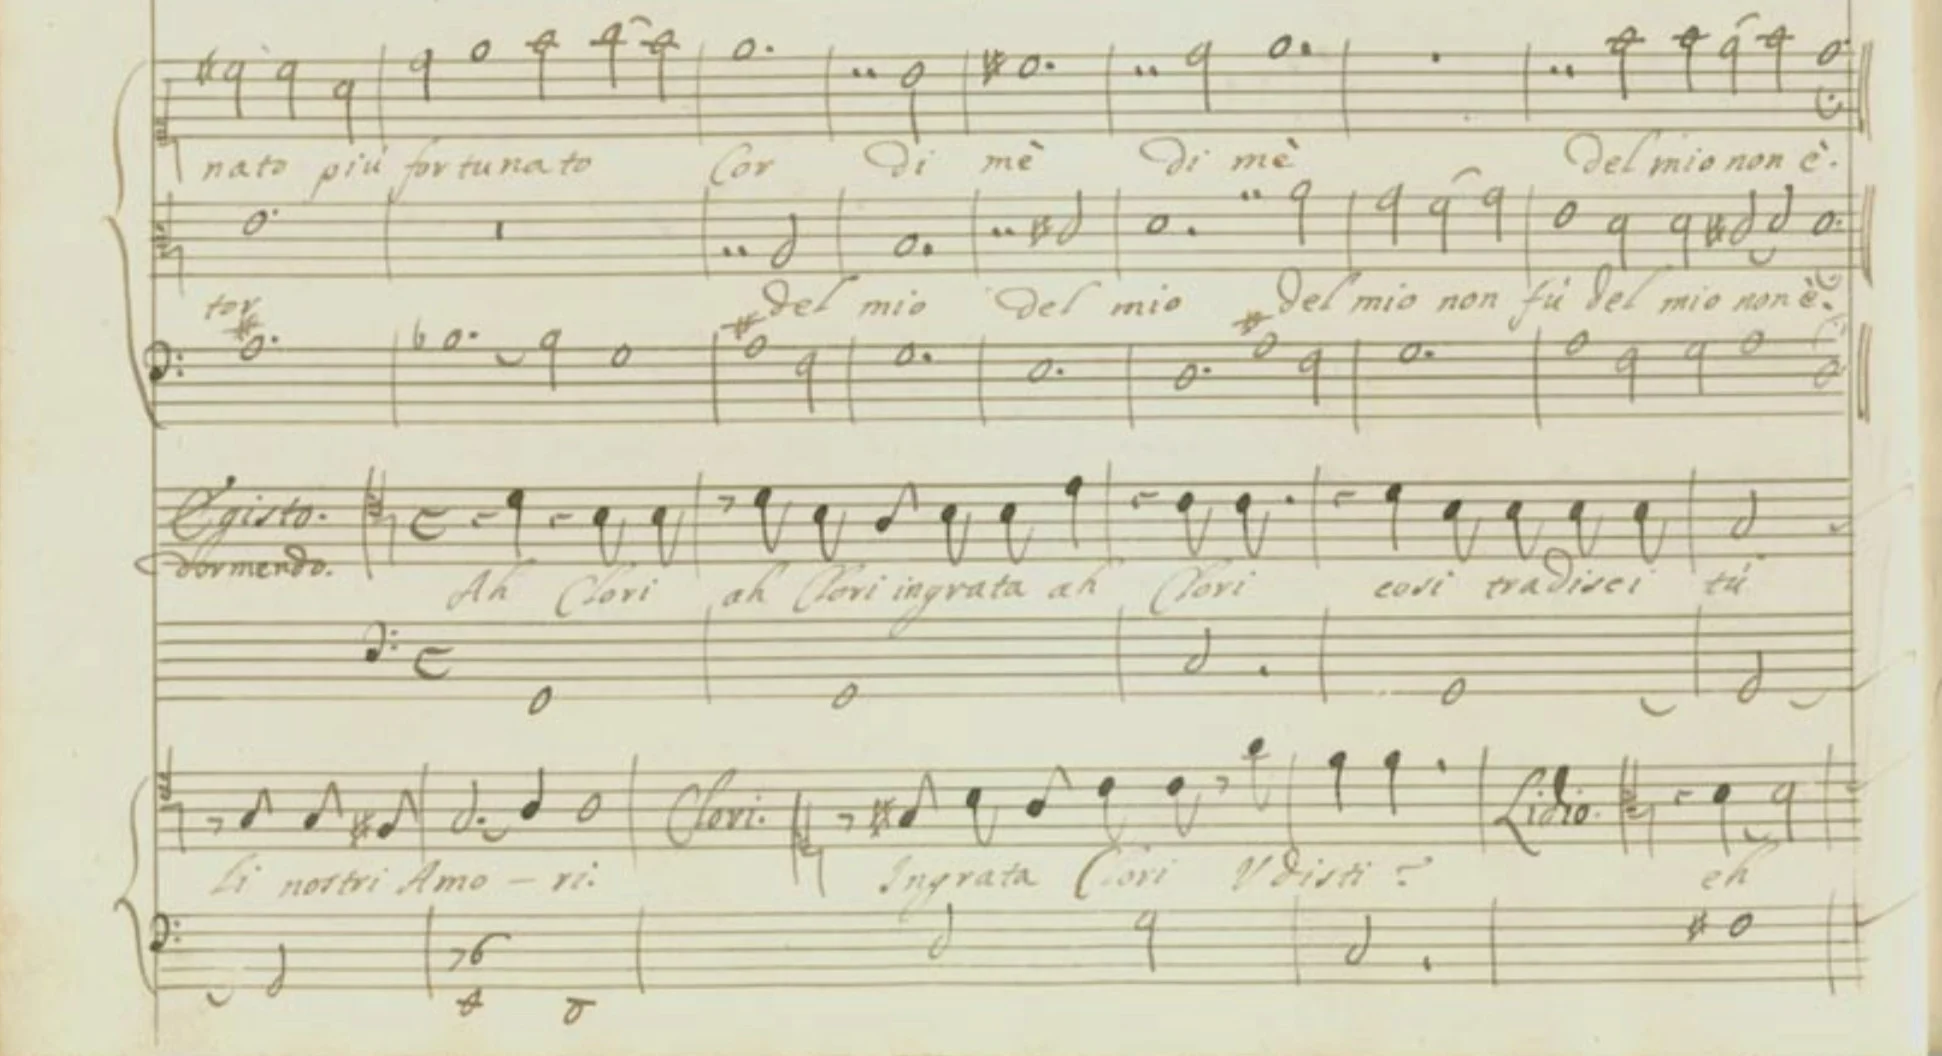 nato piu fortunato Cor di mè di mè del mio non è.
tor del mio del mio del mio non fù del mio non è.
Egisto.
dormendo.
Ah Clori ah Clori ingrata ah Clori cosi tradisci tù
Clori.
Lidio.
li nostri Amo - ri. Ingrata Clori Udisti? eh
76